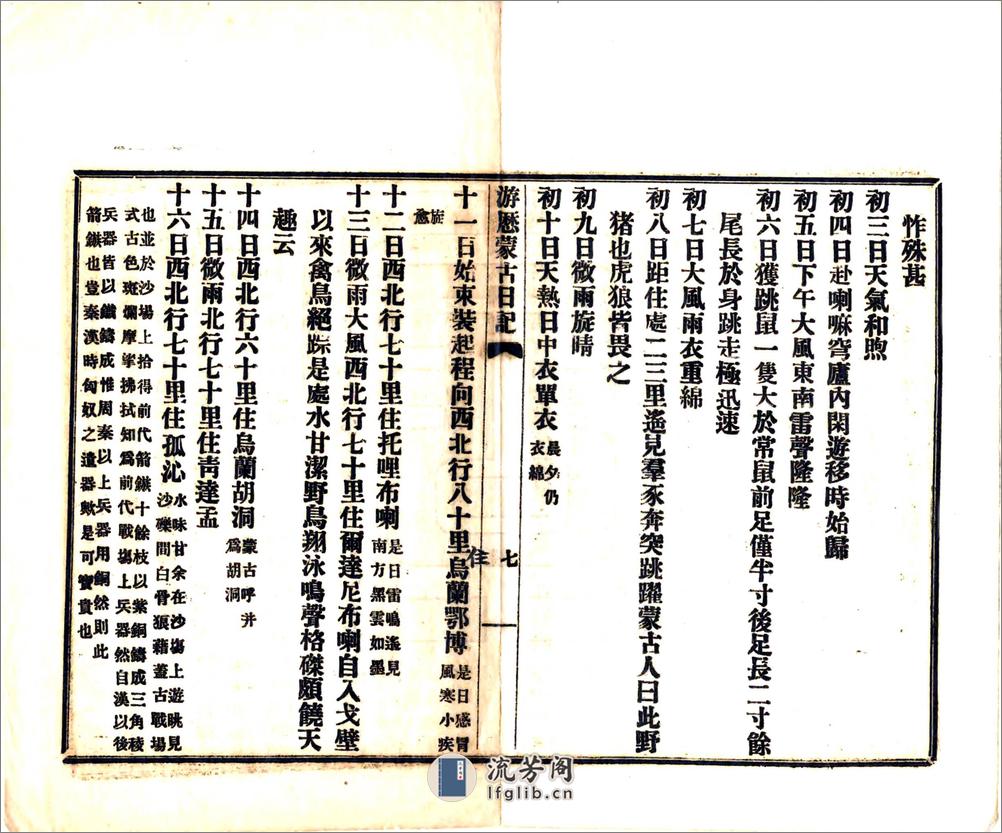 怍殊甚
初三日天氣和煦
初四日赴喇嘛穹廬內閑遊移時始歸
初五日下午大風東南雷聲隆隆
初六日獲跳鼠一隻大於常鼠前足僅半寸後足長二寸餘
尾長於身跳走極迅速
初七日大風雨衣重綿
初八日距住處二三里遙見羣豕奔突跳躍蒙古人曰此野
猪也虎狼皆畏之
初九日微雨旋晴
初十日天熱日中衣單衣晨夕仍
衣綿
游厯蒙古日記
七
住
十一日始束裝起程向西北行八十里烏蘭鄂博是日感冒
風寒小疾
旋
愈
十二日西北行七十里住托哩布喇是日雷鳴遙見
南方黑雲如墨
十三日微雨大風西北行七十里住爾達尼布喇自入戈壁
以來禽鳥絕踪是處水甘潔野鳥翔泳鳴聲格磔頗饒天
趣云
十四日西北行六十里住烏蘭胡洞蒙古呼井
為胡洞
十五日微雨北行七十里住靑達孟
十六日西北行七十里住孤沁水味甘余在沙塲上遊眺見
沙礫間白骨狼藉蓋古戰場
也並於沙場上拾得前代箭鏃十餘枝以紫銅鑄成三角稜
式古色斑斕摩挲拂拭知為前代戰塲上兵器然自漢以後
兵器皆以鐵鑄成惟周秦以上兵器用銅然則此
箭鏃也豈秦漢時匈奴之遺器歟是可寶貴也
流芳阁
lfglib.cn